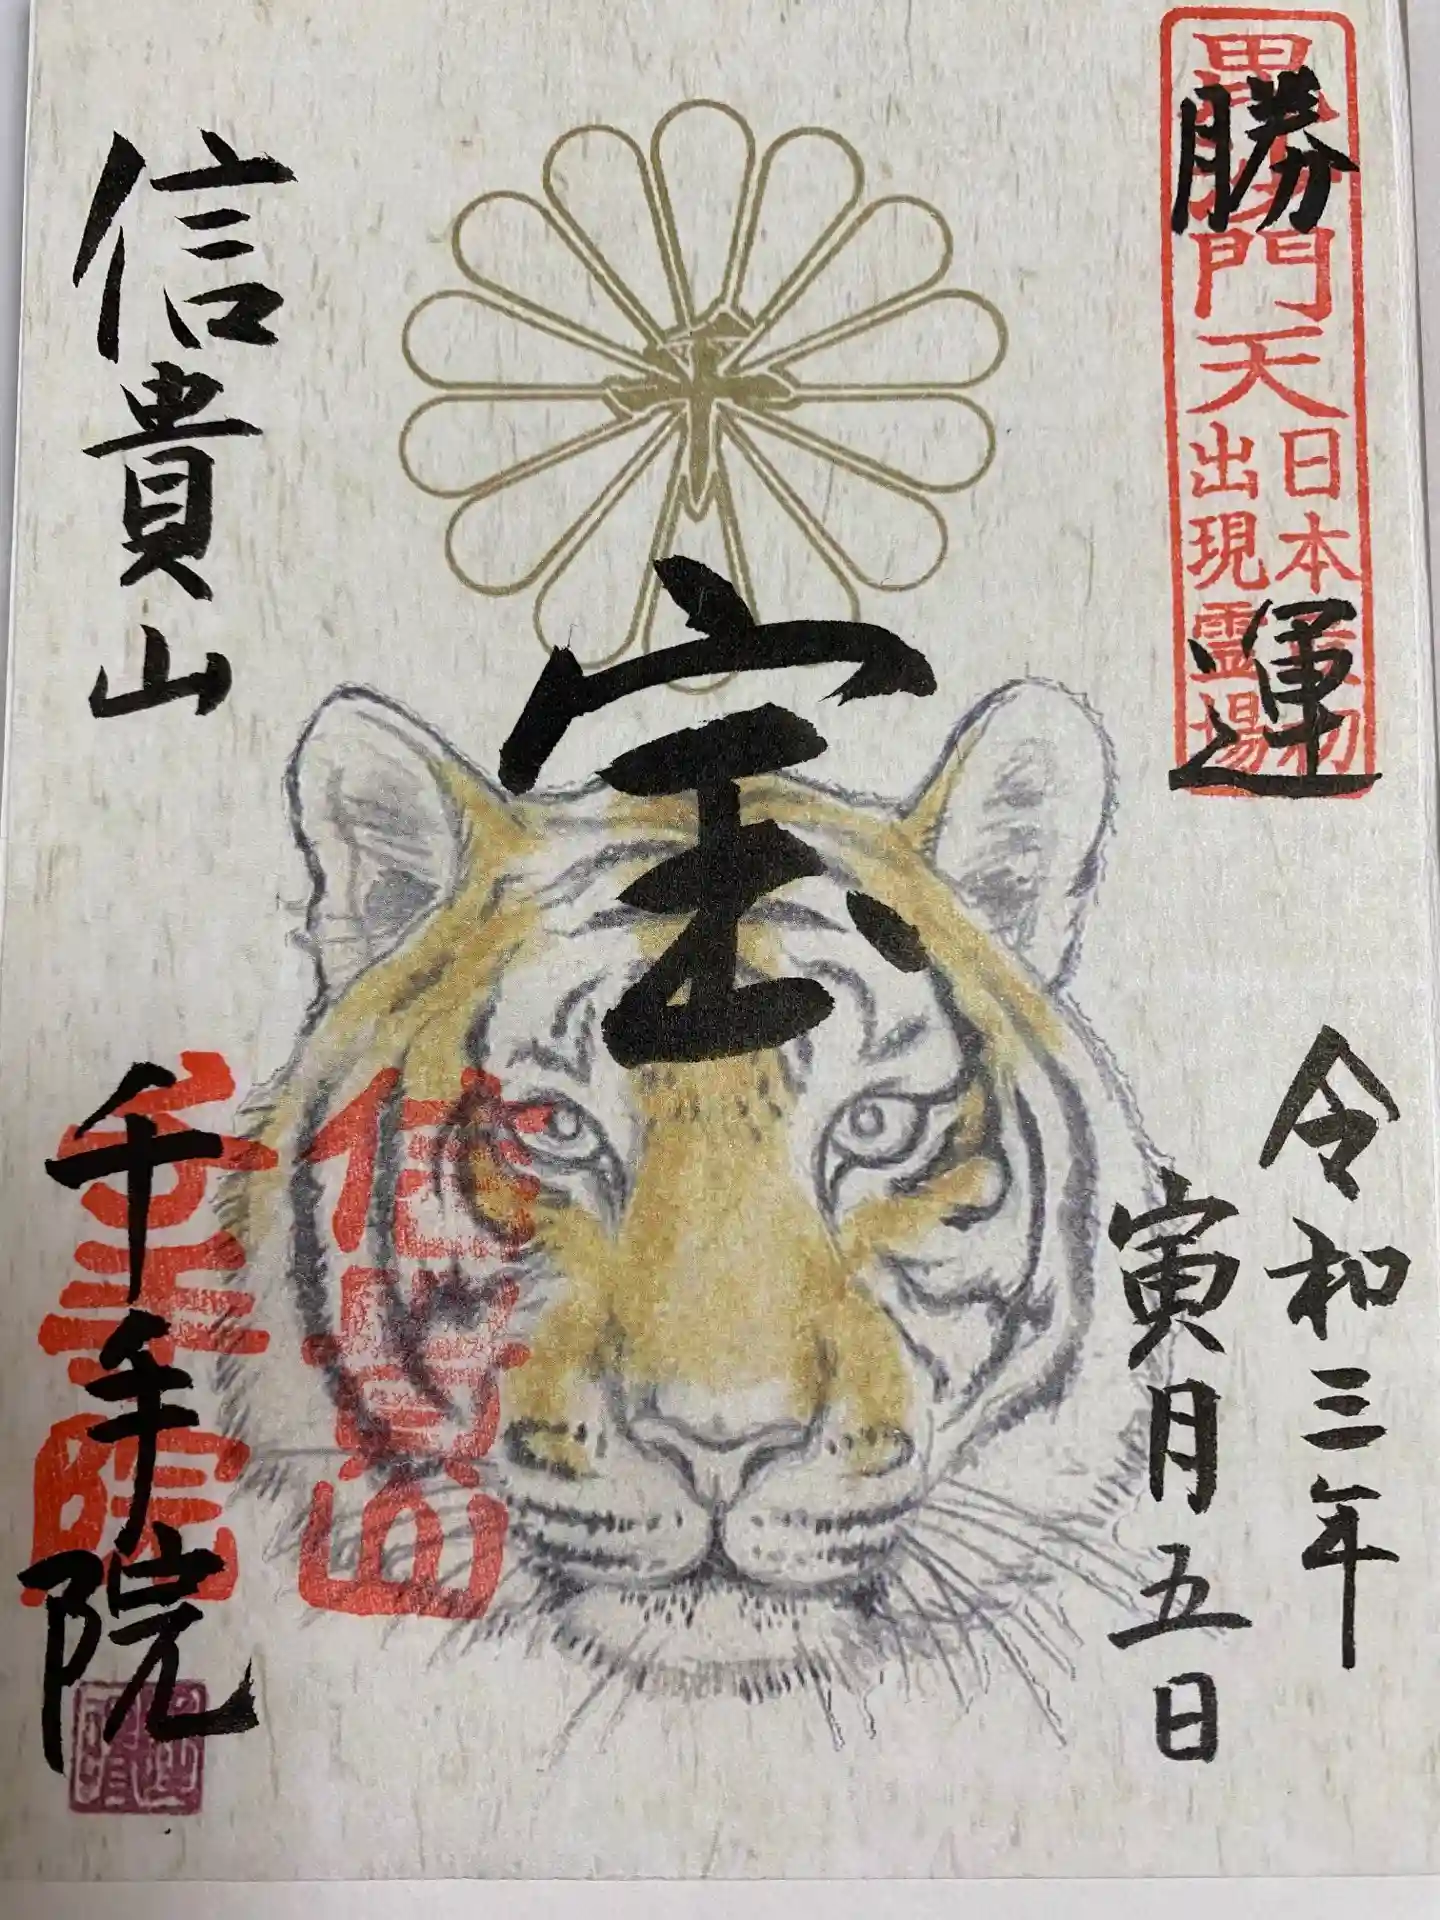 勝運
毘沙門天
日本最初
出現霊場
令和三年
寅月五日
宝
信貴山
千手院
信貴山
千手院